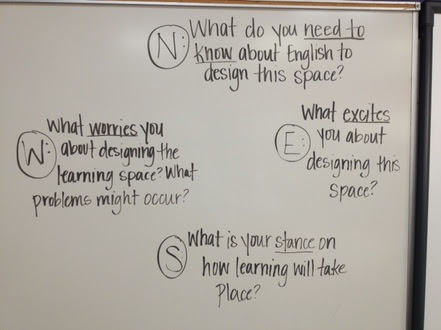 N: What do you need to
know about English to
design this space?
W: What worries you
about designing the
learning space? What
problems might occur?
E: What excites
you about
designing this
space?
S What is your stance on
how learning will take
Place?